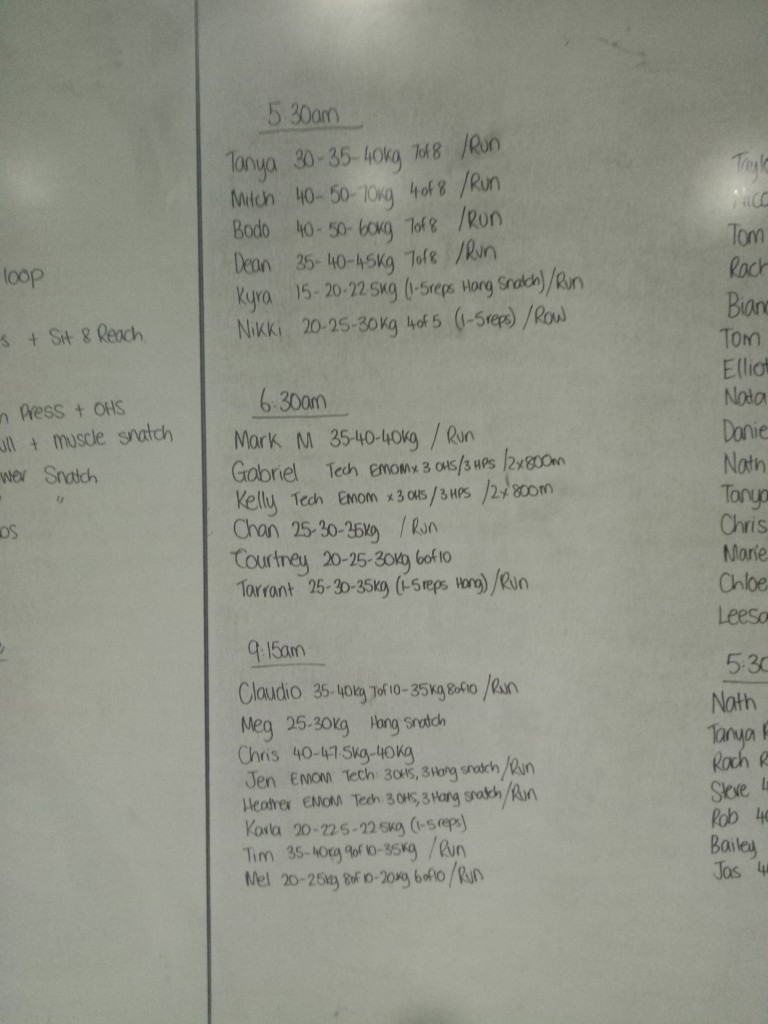 loop
s + Sit & Reach
n Press + OHS
ull + muscle snatch
wer Snatch
" "
os
5:30am
Tanya 30-35-40kg 7of8 /Run
Mitch 40-50-70kg 4of8 /Run
Bodo 40-50-60kg 7of8 /Run
Dean 35-40-45kg 7of8 /Run
Kyra 15-20-22.5kg (1-5reps Hang Snatch)/Run
Nikki 20-25-30kg 4of5 (1-5reps) /Row
6:30am
Mark M 35-40-40kg / Run
Gabriel Tech EMOM x 3 OHS/3 HPS /2x800m
Kelly Tech Emom x 3 OHS/3 HPS /2x800m
Chan 25-30-35kg / Run
Courtney 20-25-30kg 6of10
Tarrant 25-30-35kg (1-5reps Hang)/Run
9:15am
Claudio 35-40kg 7of10-35kg 8of10 /Run
Meg 25-30kg Hang snatch
Chris 40-47.5kg-40kg
Jen EMOM Tech: 3OHS, 3Hang snatch/Run
Heather EMOM Tech: 3OHS, 3Hang snatch/Run
Karla 20-22.5-22.5kg (1-5reps)
Tim 35-40kg 9of10-35kg /Run
Mel 20-25kg 8of10-20kg 6of10/Run
Taylo
Nico
Tom
Rach
Bian
Tom
Elliot
Nata
Danie
Nath
Tanya
Chris
Marie
Chloe
Leesa
5:30
Nath
Tanya R
Rach R
Steve 4
Rob 40
Bailey
Jas 4